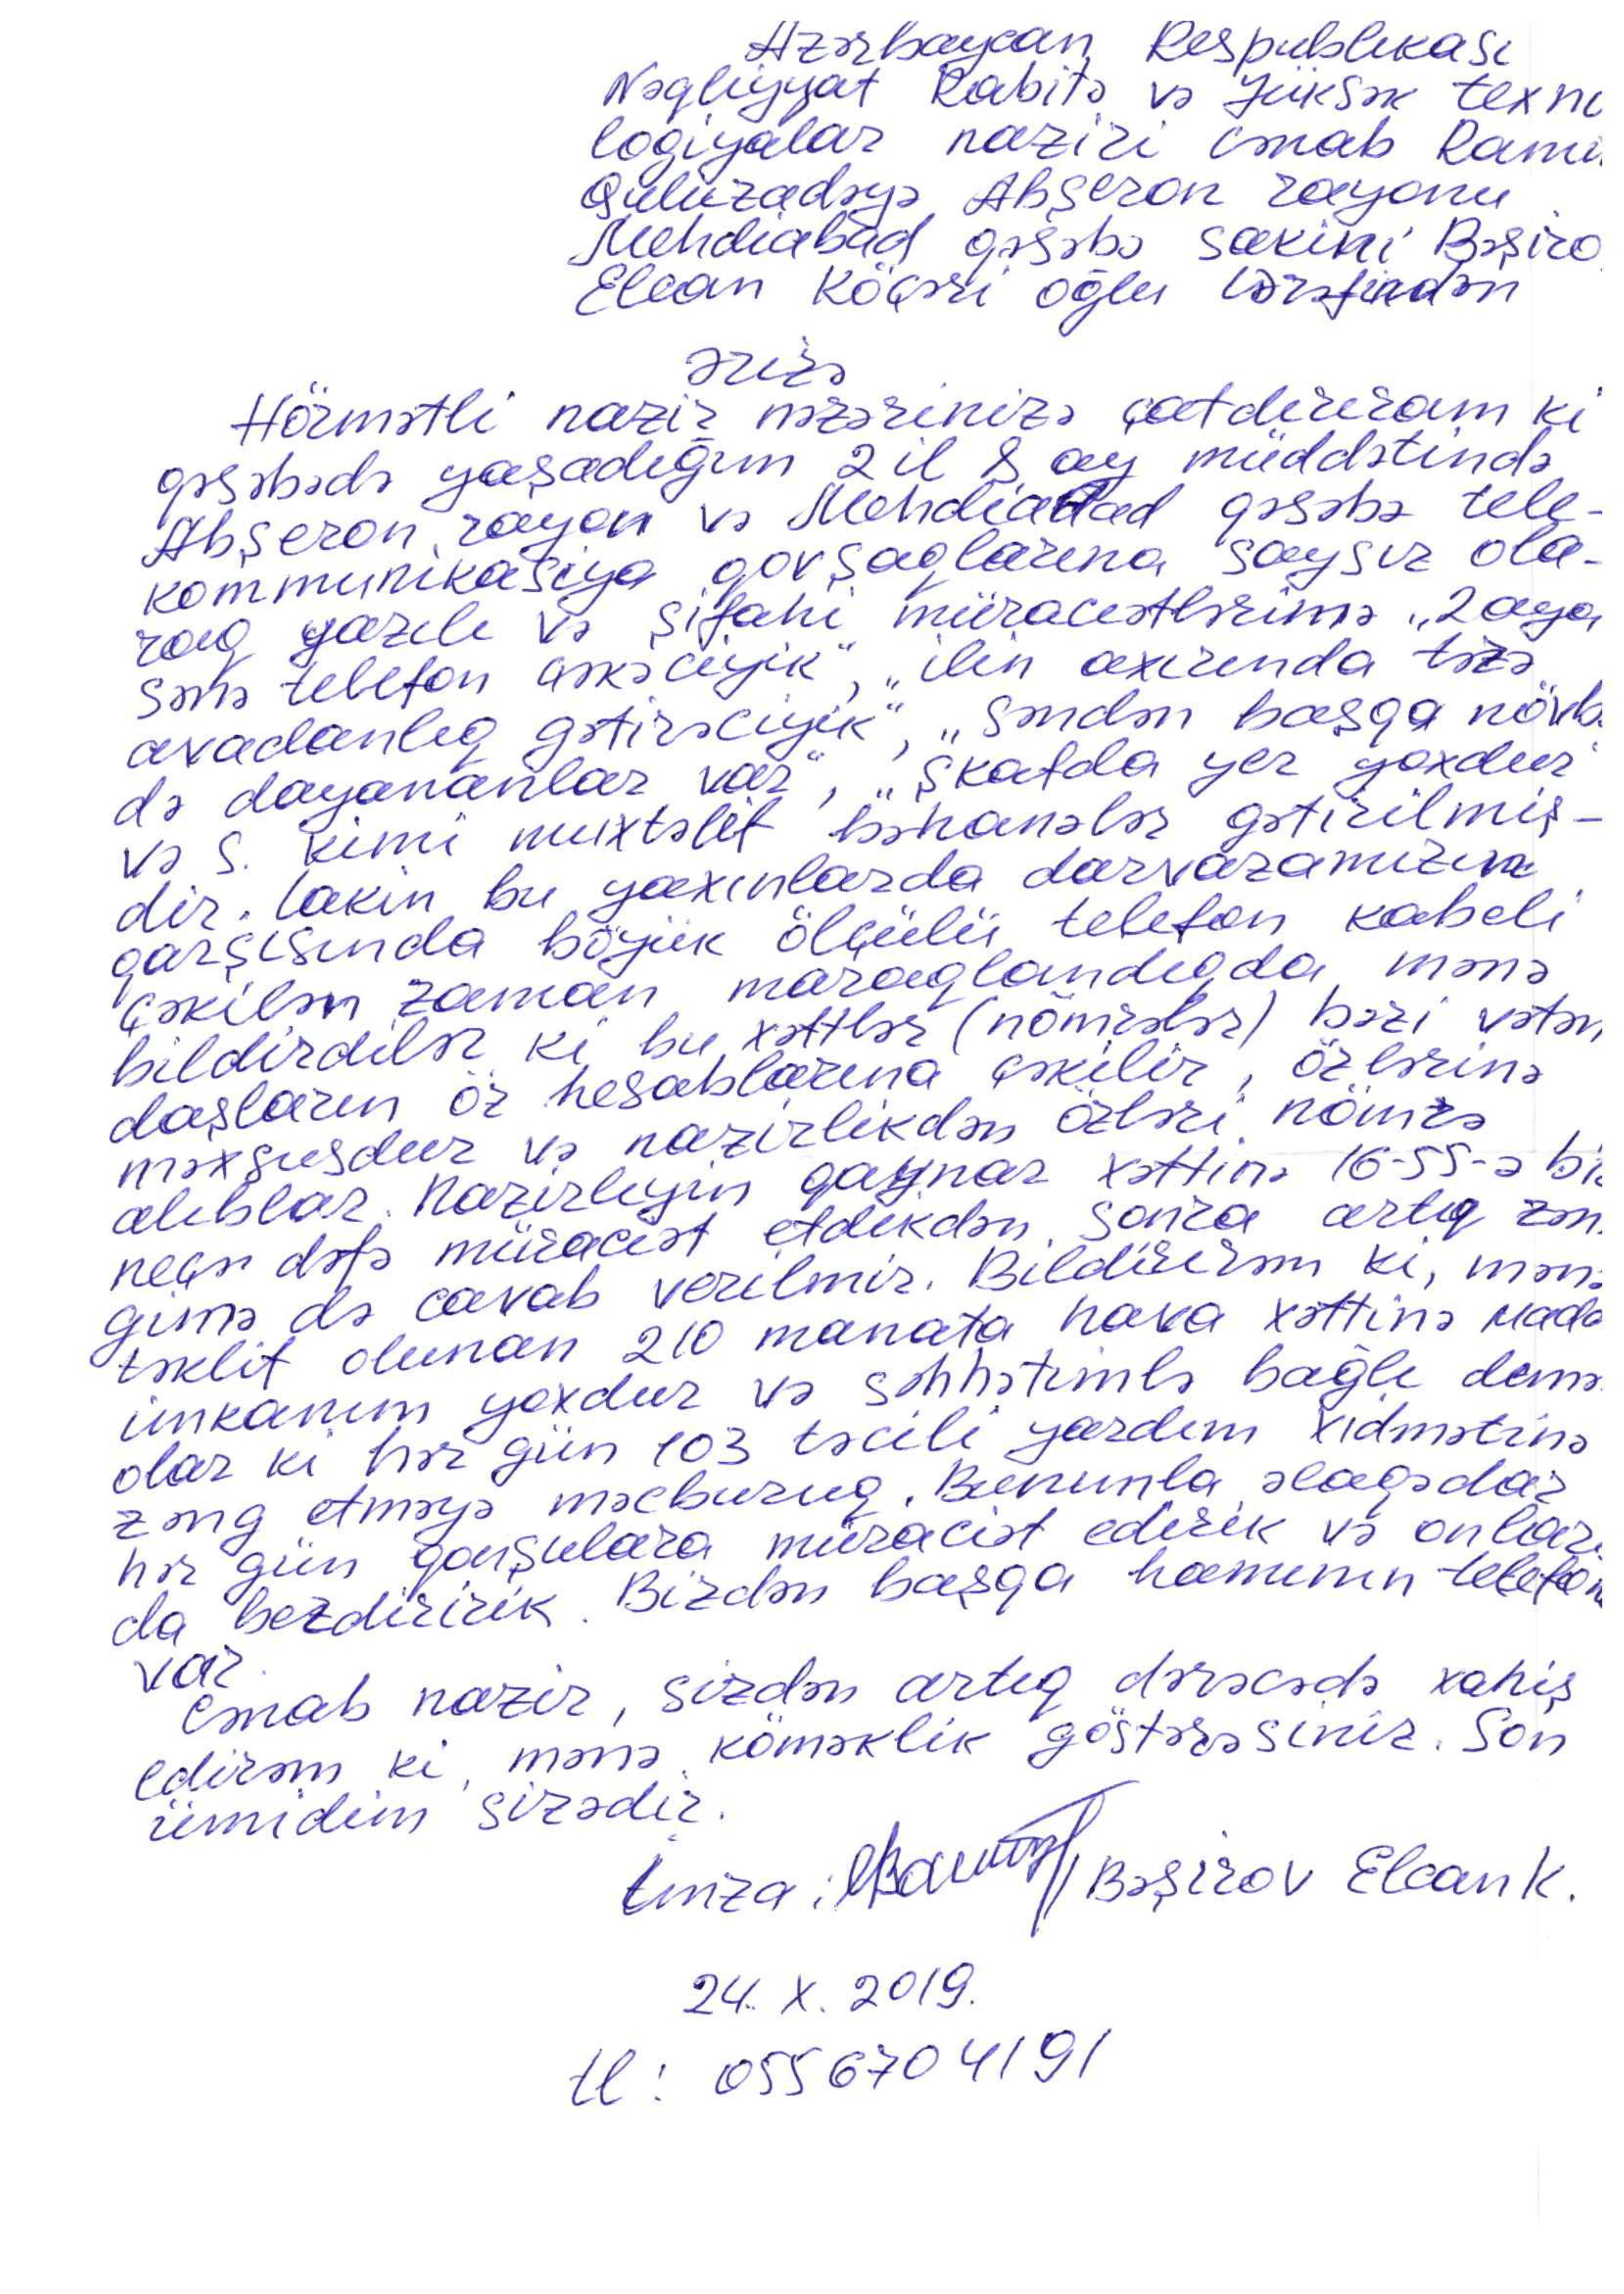 Azərbaycan Respublikası
Nəqliyyat Rabitə və Yüksək texno
logiyalar naziri cənab Rami
Quluzadəyə Abşeron rayonu
Mehdiabad qəsəbə sakini Bəşiro
Elcan Köçəri oğlu tərəfindən
Ərizə
Hörmətli nazir nəzərinizə çatdırıram ki
qəsəbədə yaşadığım 2 il 8 ay müddətində
Abşeron rayon və Mehdiabad qəsəbə tele-
kommunikasiya qovşaqlarına saysız ola-
raq yazılı və şifahi müraciətlərimə „2 aya
sənə telefon çəkəciyik“, „ilin axırında təzə
avadanlıq gətirəciyik“, „səndən başqa növbə
də dayananlar var“, „şkafda yer yoxdur“
və s. kimi muxtəlif bəhanələr gətirilmiş-
dir. Lakin bu yaxınlarda darvazamızın
qarşısında böyük ölçülü telefon kabeli
çəkilən zaman maraqlandıqda mənə
bildirdilər ki bu xəttlər (nömrələr) bəzi vətən
daşların öz hesablarına çəkilir, özlərinə
məxsusdur və nazirlikdən özləri nömrə
alıblar. Nazirliyin qaynar xəttinə 16-55-ə bir
neçə dəfə müraciət etdikdən sonra artıq zən
gimə də cavab verilmir. Bildirirəm ki, mənə
təklif olunan 210 manata hava xəttinə maddi
imkanım yoxdur və səhhətimlə bağlı demə
olar ki hər gün 103 təcili yardım xidmətinə
zəng etməyə məcburuq. Bununla əlaqədar
hər gün qonşulara müraciət edirik və onları
da bezdiririk. Bizdən başqa hamının telefonu
var.
Cənab nazir, sizdən artıq dərəcədə xahiş
edirəm ki, mənə köməklik göstərəsiniz. Son
ümidim sizədir.
İmza: Bəşirov Elcan K.
24. X. 2019.
tl: 0556704191